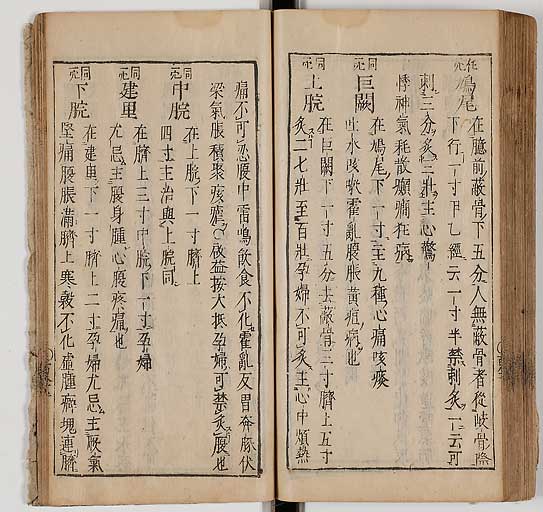 任穴
鳩尾
在臆前蔽骨下五分人無蔽骨者從岐骨際
下行一寸甲乙經云一寸半禁刺灸一云可
刺三分灸三壯主心驚
悸神氣耗散癲癇狂病
同穴
巨闕
在鳩尾下一寸主九種心痛咳痰
吐水咳嗽霍亂腹脹黃疸病也
同穴
上脘
在巨闕下一寸五分去蔽骨三寸臍上五寸
灸二七壯至百壯孕婦不可灸主心中煩熱
痛不可忍腹中雷鳴飲食不化霍亂反胃奔豚伏
梁氣脹積聚痰瘧〇啟益按大抵孕婦可禁灸腹也
同穴
中脘
在上脘下一寸臍上
四寸主治與上脘同
同穴
建里
在臍上三寸中脘下一寸孕婦
尤忌主腹身腫心腹疼痛也
同穴
下脘
在建里下一寸臍上二寸孕婦尤忌主厥氣
堅痛腹脹滿臍上寒穀不化虛腫癖塊連臍